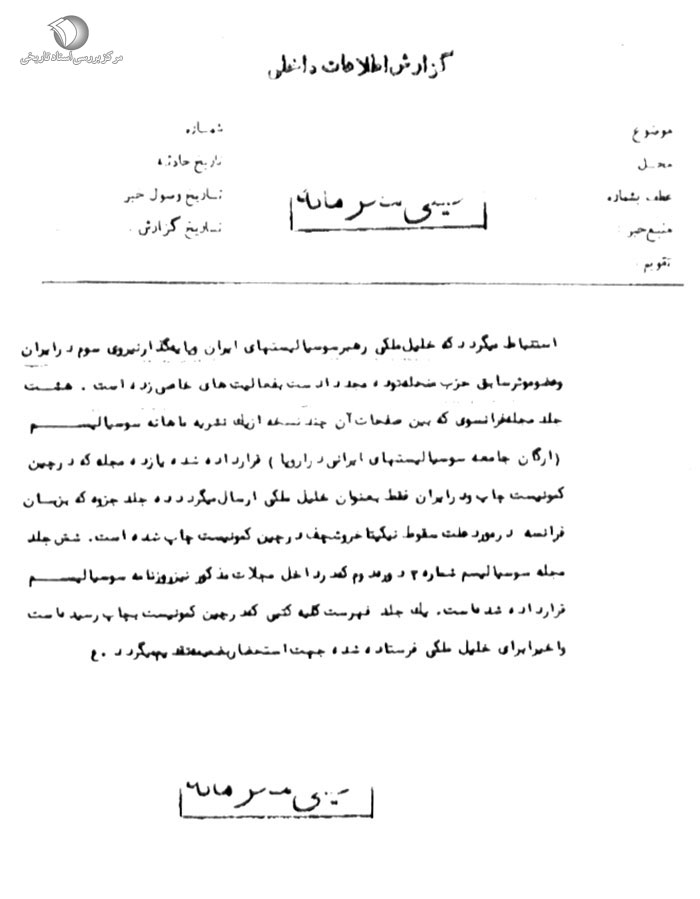 مرکز بررسی اسناد تاریخی
گزارش اطلاعات داخلی
موضوع
شماره
محل
تاریخ حادثه
عطف بشماره
تاریخ وصول خبر
منبع خبر
تاریخ گزارش
تقویم
خیلی محرمانه
استنباط میگردد که خلیل ملکی رهبر سوسیالیستهای ایران وپایه‌گذار نیروی سوم در ایران
وعضو موثر سابق حزب منحله توده مجددا دست بفعالیت های خاصی زده است . هشت
جلد مجله فرانسوی که بین صفحات آن چند نسخه از یك نشریه ماهانه سوسیالیسم
(ارگان جامعه سوسیالیستهای ایرانی در اروپا ) قرار داده شده یازده مجله که در چین
کمونیست چاپ ودر ایران فقط بعنوان خلیل ملکی ارسال میگردد ده جلد جزوه که بزبان
فرانسه در مورد علت سقوط نیکیتا خروشچف در چین کمونیست چاپ شده است. شش جلد
مجله سوسیالیسم شماره ۲ دوره دوم که در داخل مجلات مذکور نیز روزنامه سوسیالیسم
قرار داده شده است. یك جلد فهرست کلیه کتبی که در چین کمونیست بچاپ رسیده است
واخیرا برای خلیل ملکی فرستاده شده جهت استحضار بضمیمه تقدیم میگردد . ع
خیلی محرمانه